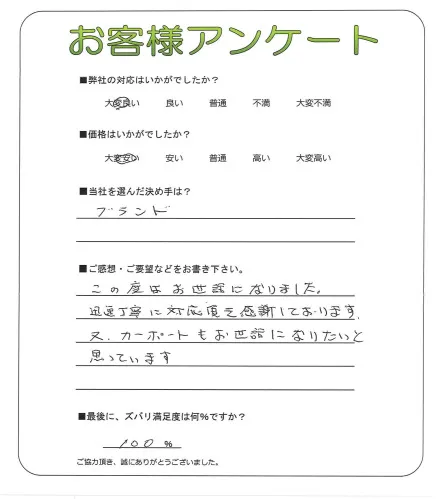 お客様アンケート
■弊社の対応はいかがでしたか？
大変良い 良い 普通 不満 大変不満
■価格はいかがでしたか？
大変安い 安い 普通 高い 大変高い
■当社を選んだ決め手は？
ブランド
■ご感想・ご要望などをお書き下さい。
この度はお世話になりました。
迅速丁寧に対応頂き感謝しております。
又、カーポートもお世話になりたいと
思っています
■最後に、ズバリ満足度は何％ですか？
100％
ご協力頂き、誠にありがとうございました。